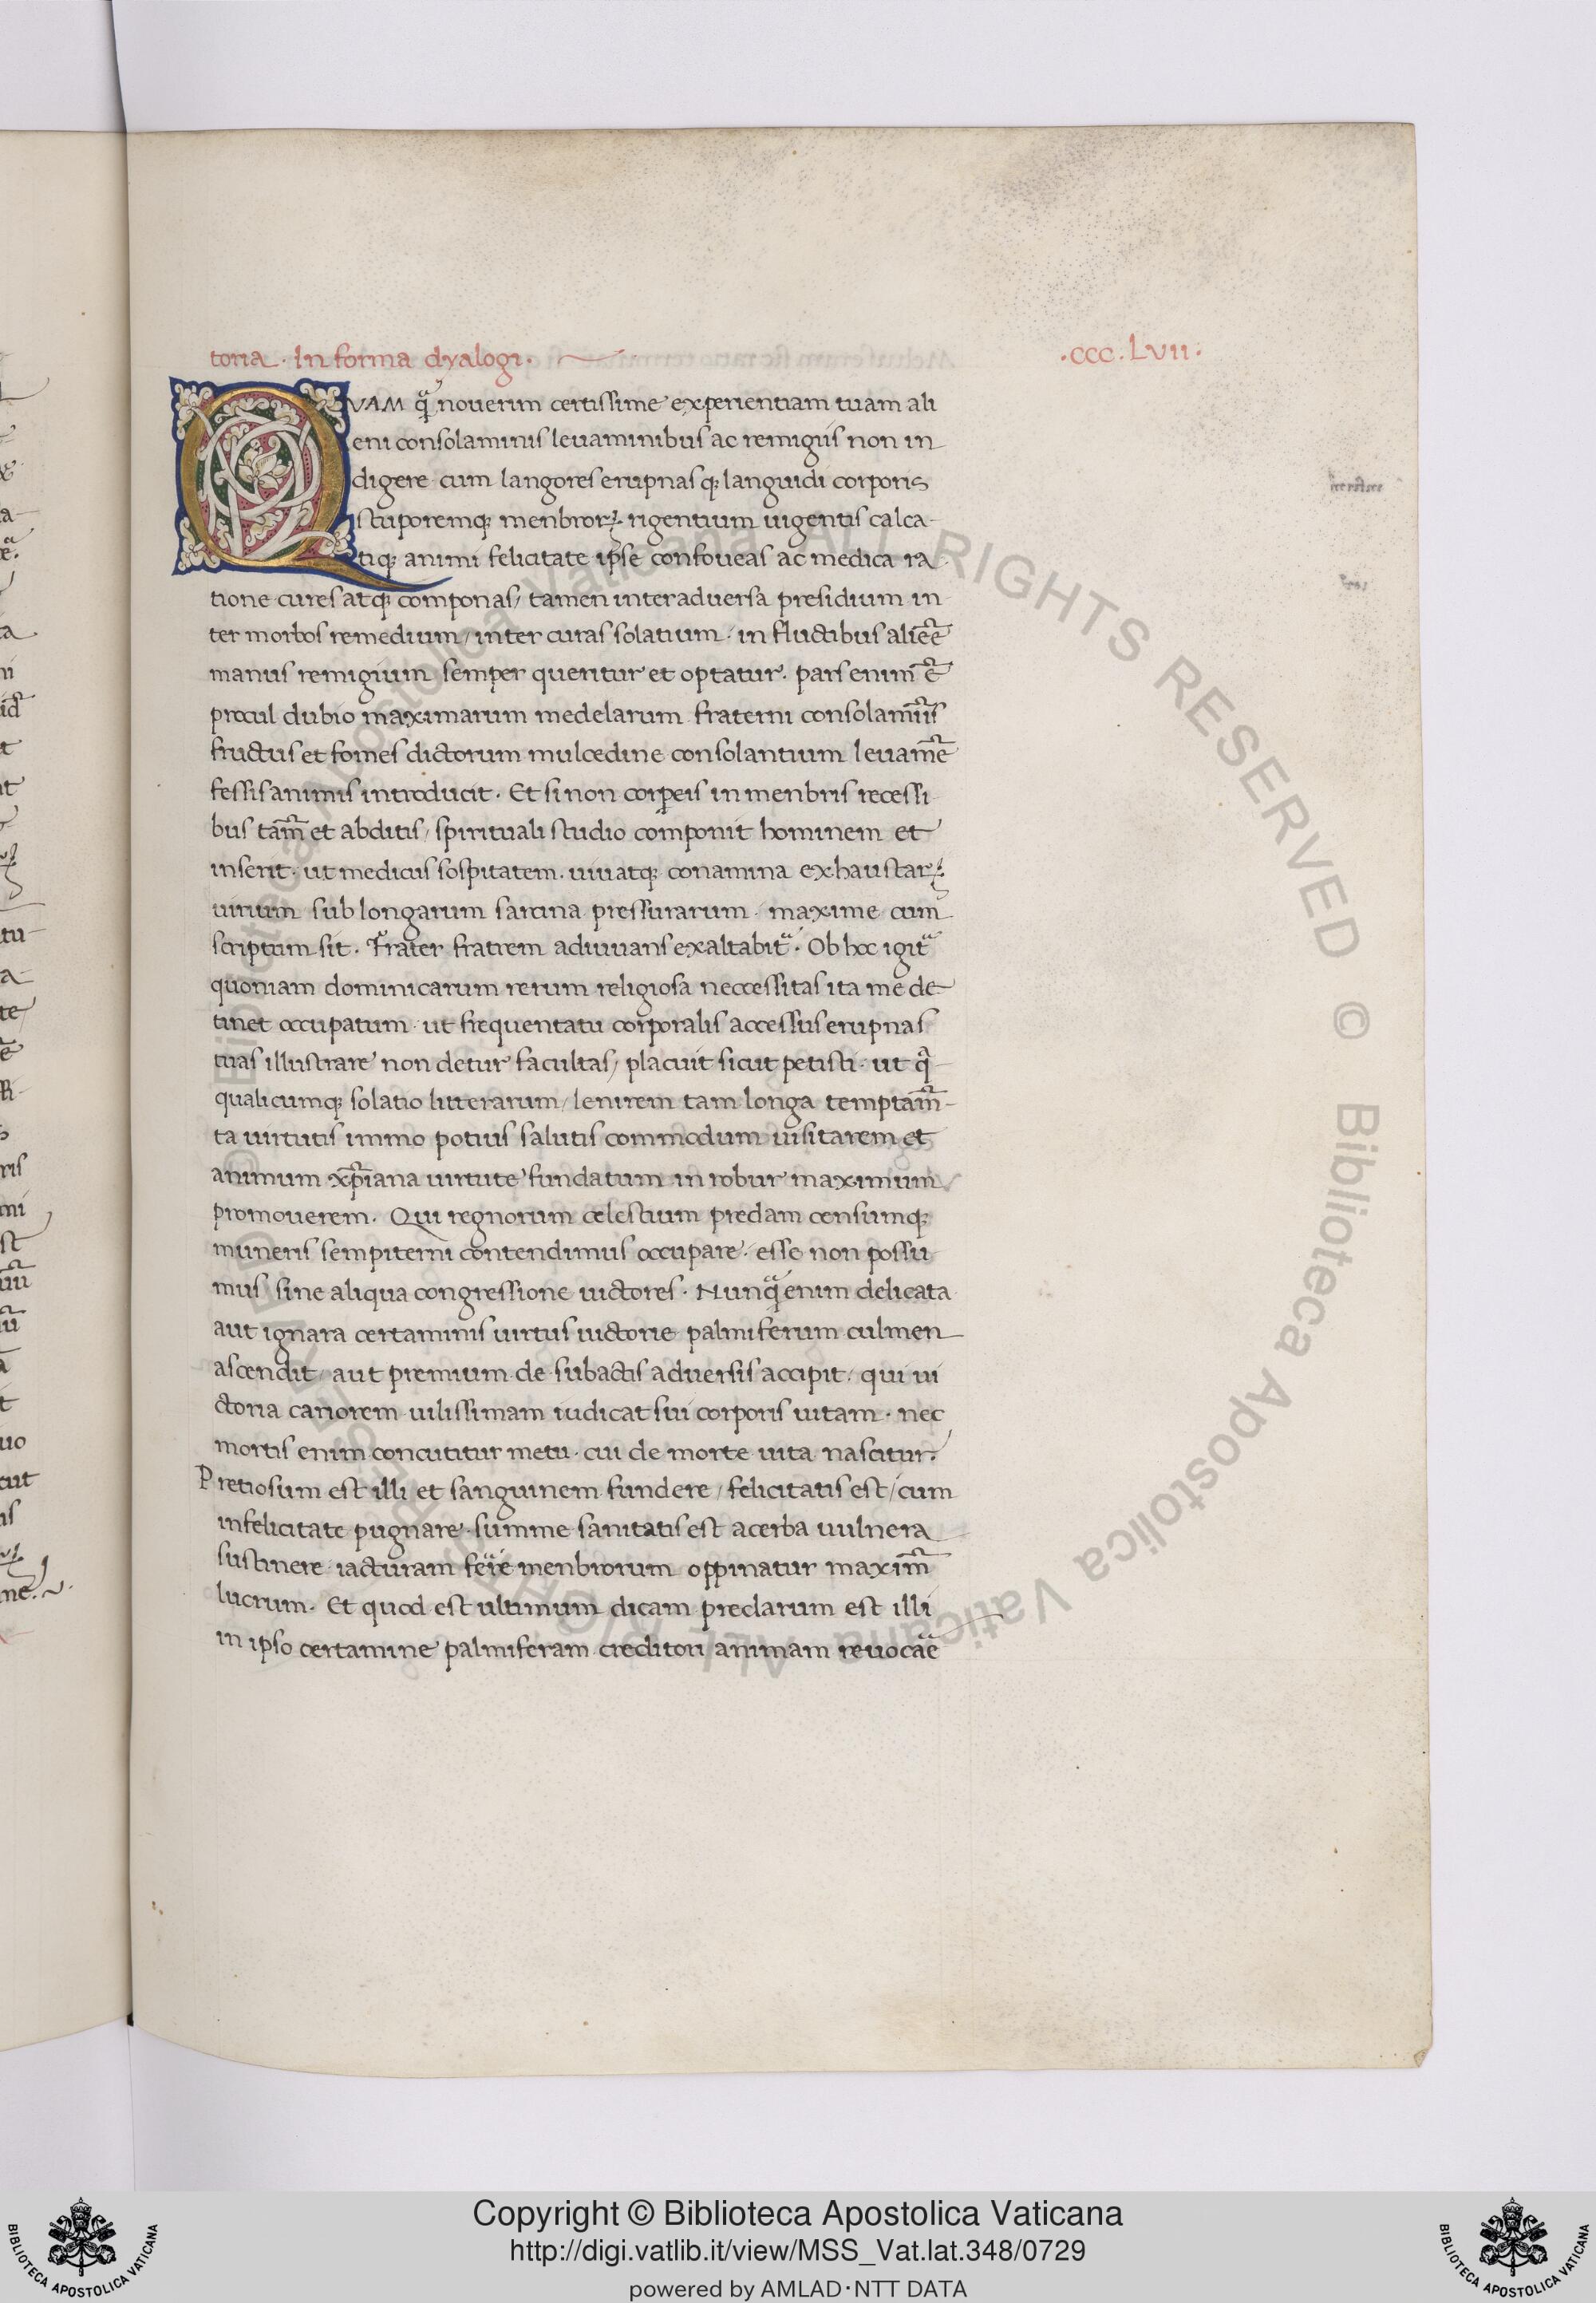 toria . In forma dyalogi .
.CCC.LVII.
QVAM ꝙᷓ nouerim certissime experientiam tuam ali
eni consolaminis leuaminibus ac remigiis non in
digere cum langores erupnasqꝫ languidi corporis
stuporemqꝫ menbroꝝ rigentium uigentis calca-
tiqꝫ animi felicitate ip̄se confoueas ac medica ra
tione cures atqꝫ componas / tamen inter aduersa presidium in
ter morbos remedium / inter curas solatium . in fluctibus aliēē
manus remigium semper queritur et optatur . pars enim ē
procul dubio maximarum medelarum fraterni consolam̄īs
fructus et fomes dictorum mulcedine consolantium leuam̄ē
fessis animis introducit . Et si non corꝑeis in menbris recessi
bus tam̄ et abditis / spirituali studio componit hominem et
inserit . ut medicus sospitatem . uiuatqꝫ conamina exhaustaꝝ
uirium sub longarum sarcina pressurarum . maxime cum
scriptum sit . Frater fratrem adiuuans exaltabitᷓ . Ob hoc igitᷓ
quoniam dominicarum rerum religiosa neccessitas ita me de-
tinet occupatum . ut frequentatu corporalis accessus erupnas
tuas illustrare non detur facultas / placuit sicut petisti . ut q̄
qualicumqꝫ solatio litterarum / lenirem tam longa temptam̄-
ta uirtutis immo potius salutis commodum uisitarem et
animum xp̄iana uirtute fundatum in robur maximum
promouerem . Qui regnorum celestium predam censumqꝫ
muneris sempiterni contendimus occupare . esse non possu
mus sine aliqua congressione uictores . Nunqᷓ enim delicata
aut ignara certaminis uirtus uictorie palmiferum culmen
ascendit / aut premium de subactis aduersis accipit . qui ui
ctoria cariorem uilissimam iudicat sui corporis uitam . nec
mortis enim concutitur metu . cui de morte uita nascitur .
Pretiosum est illi et sanguinem fundere / felicitatis est / cum
infelicitate pugnare . summe sanitatis est acerba uulnera
sustinere iacturam menbrorum oppinatur maxim̄
lucrum . Et quod est ultimum dicam preclarum est illi
in ipso certamine palmiferam creditori animam reuocāē
Copyright © Biblioteca Apostolica Vaticana
http://digi.vatlib.it/view/MSS_Vat.lat.348/0729
powered by AMLAD·NTT DATA